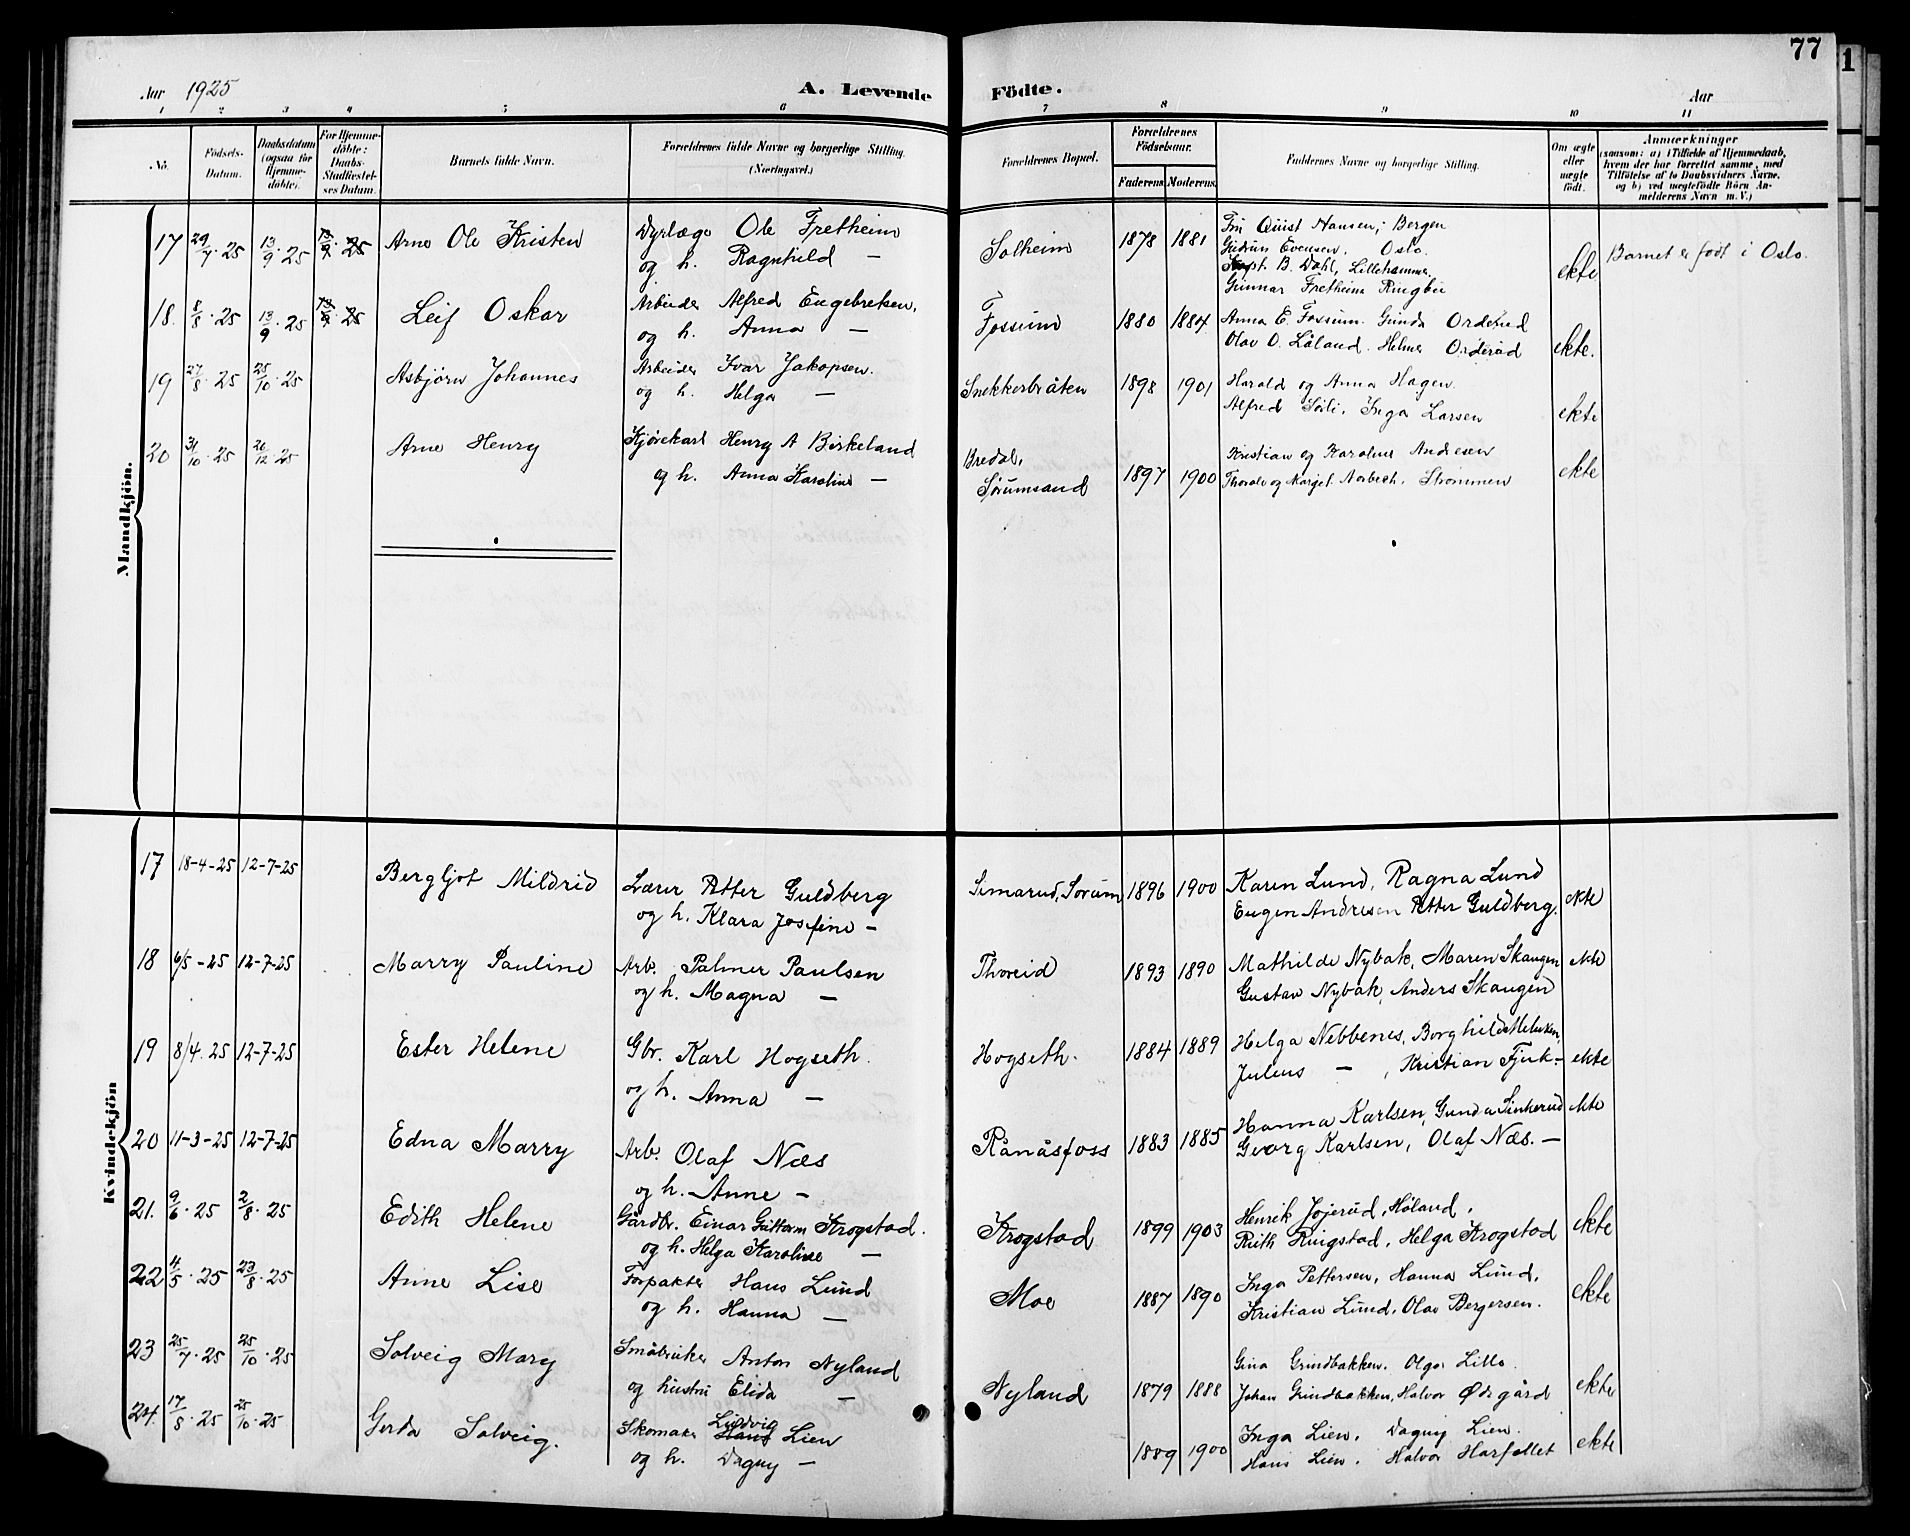 77
1
Aar 1925
A. Levende Födte.
Aar
1 2 3 4 5 6 7 8 9 10 11
No.
Födsels-Datum.
Daabsdatum (ogsaa for Hjemme-döbte).
For Hjemme-döbte: Daabs-Stadfæstel-ses Datum.
Barnets fulde Navn.
Forældrenes fulde Navne og borgerlige Stilling. (Næringsvei.)
Forældrenes Bopæl.
Forældrenes Födselsaar.
Faderens. Moderens.
Faddernes Navne og borgerlige Stilling.
Om ægte eller uægte födt.
Anmærkninger
(saasom: a) i Tilfælde af Hjemmedaab,
hvem der har forrettet samme, med
Tilföielse af to Daabsvidners Navne,
og b) ved uægtefödte Börn An-
melderens Navn m. V.)
Mandkjön.
17 29/7 · 25 13/9 · 25 13/9 · 25 Arne Ole Kristen Dyrlæge Ole Fretheim
og h. Ragnhild —
Solheim 1878 1881 Fru Quist Hansen, Bergen
Gudrun Evensen. Oslo.
Kapt. B. Dahl, Lillehammer.
Gunnar Fretheim Ringbu
ekte Barnet er født i Oslo.
18. 8/8 · 25 13/9 · 25 13/9 · 25 Leif Oskar Arbeider Alfred Engebretsen,
og h. Anna —
Fossum 1880 1884 Anna E. Fossum. Gunda Orderud
Olav O. Låland. Helmer Orderud ekte.
19 27/8 · 25 25/10 · 25 Asbjørn Johannes Arbeider Ivar Jakopsen.
og h. Helga —
Snekkerbråten 1898 1901 Harald og Anna Hagen.
Alfred Søli. Inga Larsen ekte
20 31/10 · 25 26/12 · 25 Arne Henry Kjørekarl Henry A Birkeland
og h. Anna Karoline —
Bredal,
Sørumsand 1897 1900 Kristian og Karoline Andresen
Thorolv og Marget. Norbech. Strømmen ekte
Kvindekjön
17 18-4-25 12-7-25 Bergljot Mildrid Lærer Petter Guldberg
og h. Klara Josefine —
Simarud, Sørum 1896 1900 Karen Lund, Ragna Lund
Eugen Andresen Petter Guldberg. ekte
18 6/5 -25 12-7-25 Marry Pauline Arb. Palmer Paulsen
og h. Magna —
Thoreid 1893 1890 Mathilde Nybak, Maren Skaugen
Gustav Nybak, Anders Skaugen ekte
19 8/4. 25 12-7-25 Ester Helene Gbr. Karl Hogseth.
og h. Anna —
Hogseth. 1884 1889 Helga Nebbenes, Borghild
Julius — , Kristian Fjuk- ekte
20 11-3-25 12-7-25 Edna Marry Arb. Olaf Næs
og h. Anne —
Rånåsfoss 1883 1885 Hanna Karlsen, Gunda Sinkerud
Georg Karlsen, Olaf Næs. — ekte
21. 9/6 · 25 2/8 · 25 Edith Helene Gårdbr. Einar Guttorm Krogstad.
og h. Helga Karoline —
Krogstad 1899 1903 Henrik Jøjerud, Høland,
Ruth Ringstad, Helga Krogstad ekte
22 4/5 · 25 23/8 · 25 Anne Lise Forpakter Hans Lund
og h. Hanna —
Moe 1887 1890 Inga Pettersen, Hanna Lund,
Kristian Lund, Olav Bergersen. ekte
23 25/7 · 25 25/10 · 25 Solveig Mary Småbruker Anton Nyland
og hustru Elida —
Nyland 1879 1888 Gina Grindbakken. Olga Lillo.
Johan Grindbakken, Halvor Ødegård ekte
24. 17/8 · 25 25/10 · 25 Gerda Solveig. Skomaker Ludvig Hans Lien
og h. Dagny —
1889 1900 Inga Lien, Dagny Lien.
Hans Lien. Halvor Harfallet ekte